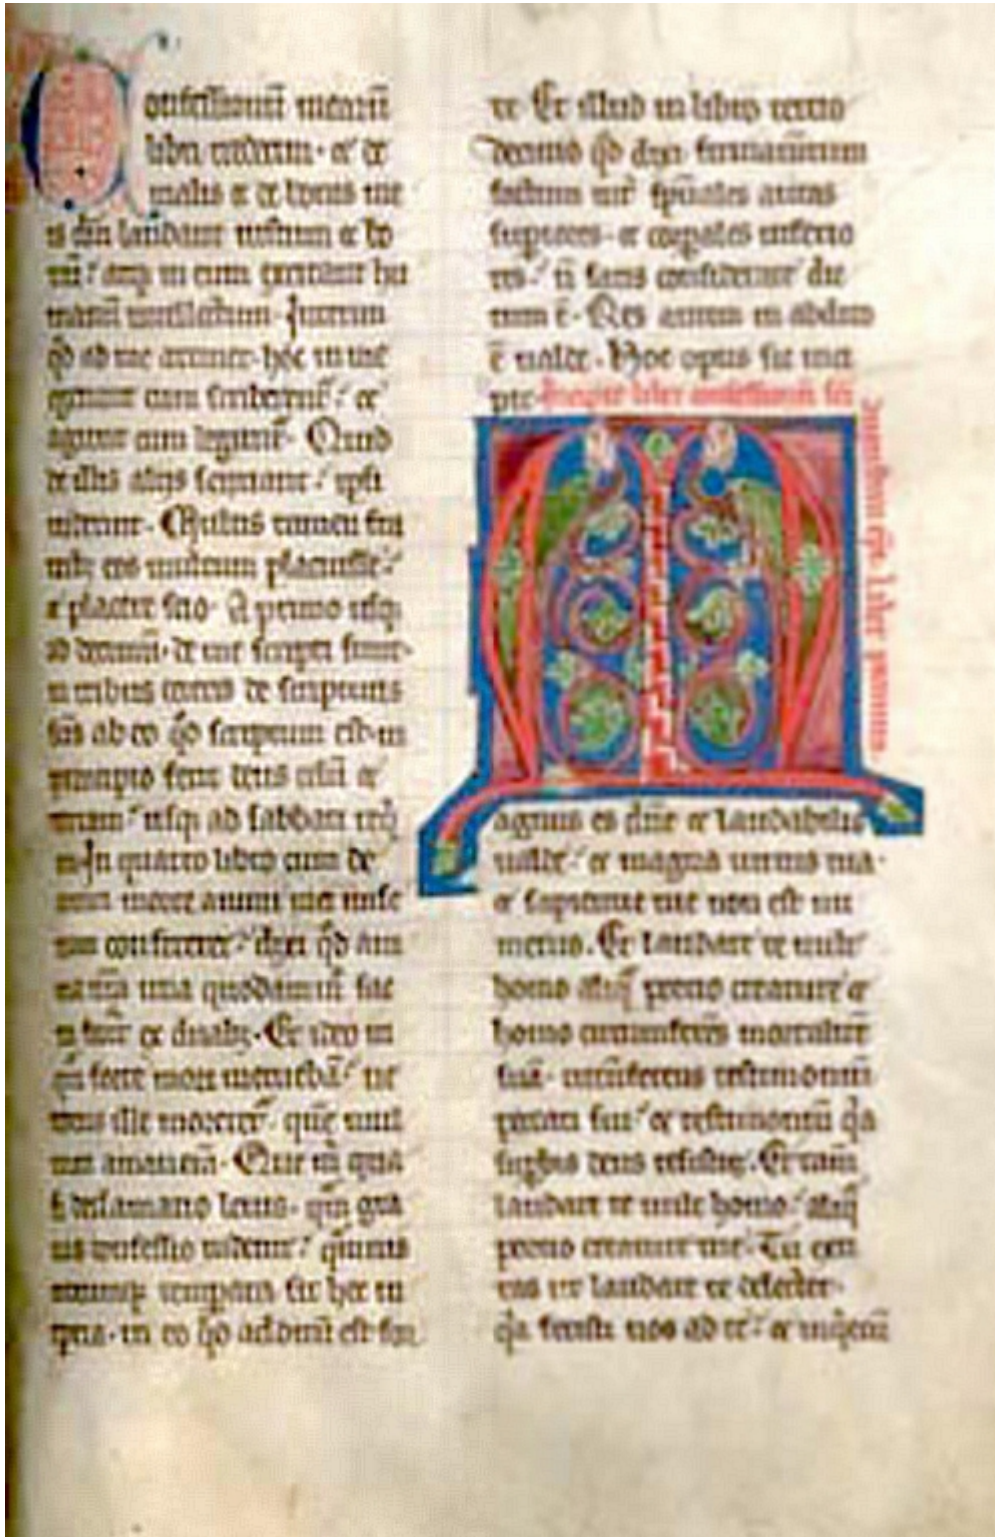 Confessionū mearū
libri tredecim · et de
malis et de bonis me
is dm̄ laudant iustum et bo
nū · atqꝫ in eum excitant hu
manū intellectum · Interim
qd ad me attinet · hoc in me
egerunt cum scriberent̄ · et
agunt cum legunt̄ · Quid
de illis alii sentiant · ipsi
uiderint · Multis tamen fra
tribꝫ eos multum placuisse
et placere scio · A primo usqꝫ
ad decimū · de me scripti sunt ·
in tribus ceteris de scripturis
scīs ab eo qd scriptum est · in
principio fecit deus celū et
terram · usqꝫ ad sabbati req̄
em · In quarto libro cum de
amici morte animi mei mise
riam confiterer · dixi qd ani
ma nr̄a una quodammō fac
ta fuerat ex duabꝫ · Et ideo in
quid forte mori metuebā · ne
totus ille moreret̄ · quē mul
tum amauerā · Que m̄ qua
si declamatio leuis · qm̄ gra
uis confessio uidetur · quāuis
utcumqꝫ temperata sit hec in
eptia · in eo qd additū est for
te Et illud in libro tertio
decimo qd dixi firmamentum
factum int̄ spūales aquas
superiores · et corpales inferio
res · n̄ satis considerate dic
tum ē · Res autem in abdito
ē ualde · Hoc opus sic inci
pit · Incipit liber confessionū scī
Augustini epī · Liber primus
Magnus es dn̄e et laudabilis
ualde · et magna uirtus tua ·
et sapientie tue non est nu
merus · Et laudare te uult
homo aliqꝫ portio creature et
homo circumferēs mortalitatē
suā · circūferens testimoniū
peccati sui · et testimoniū qa
supbis deus resistis · Et tam̄
laudare te uult homo · aliqꝫ
portio creature tue · Tu exci
tas ut laudare te delectet ·
qa fecisti nos ad te · et inqietū